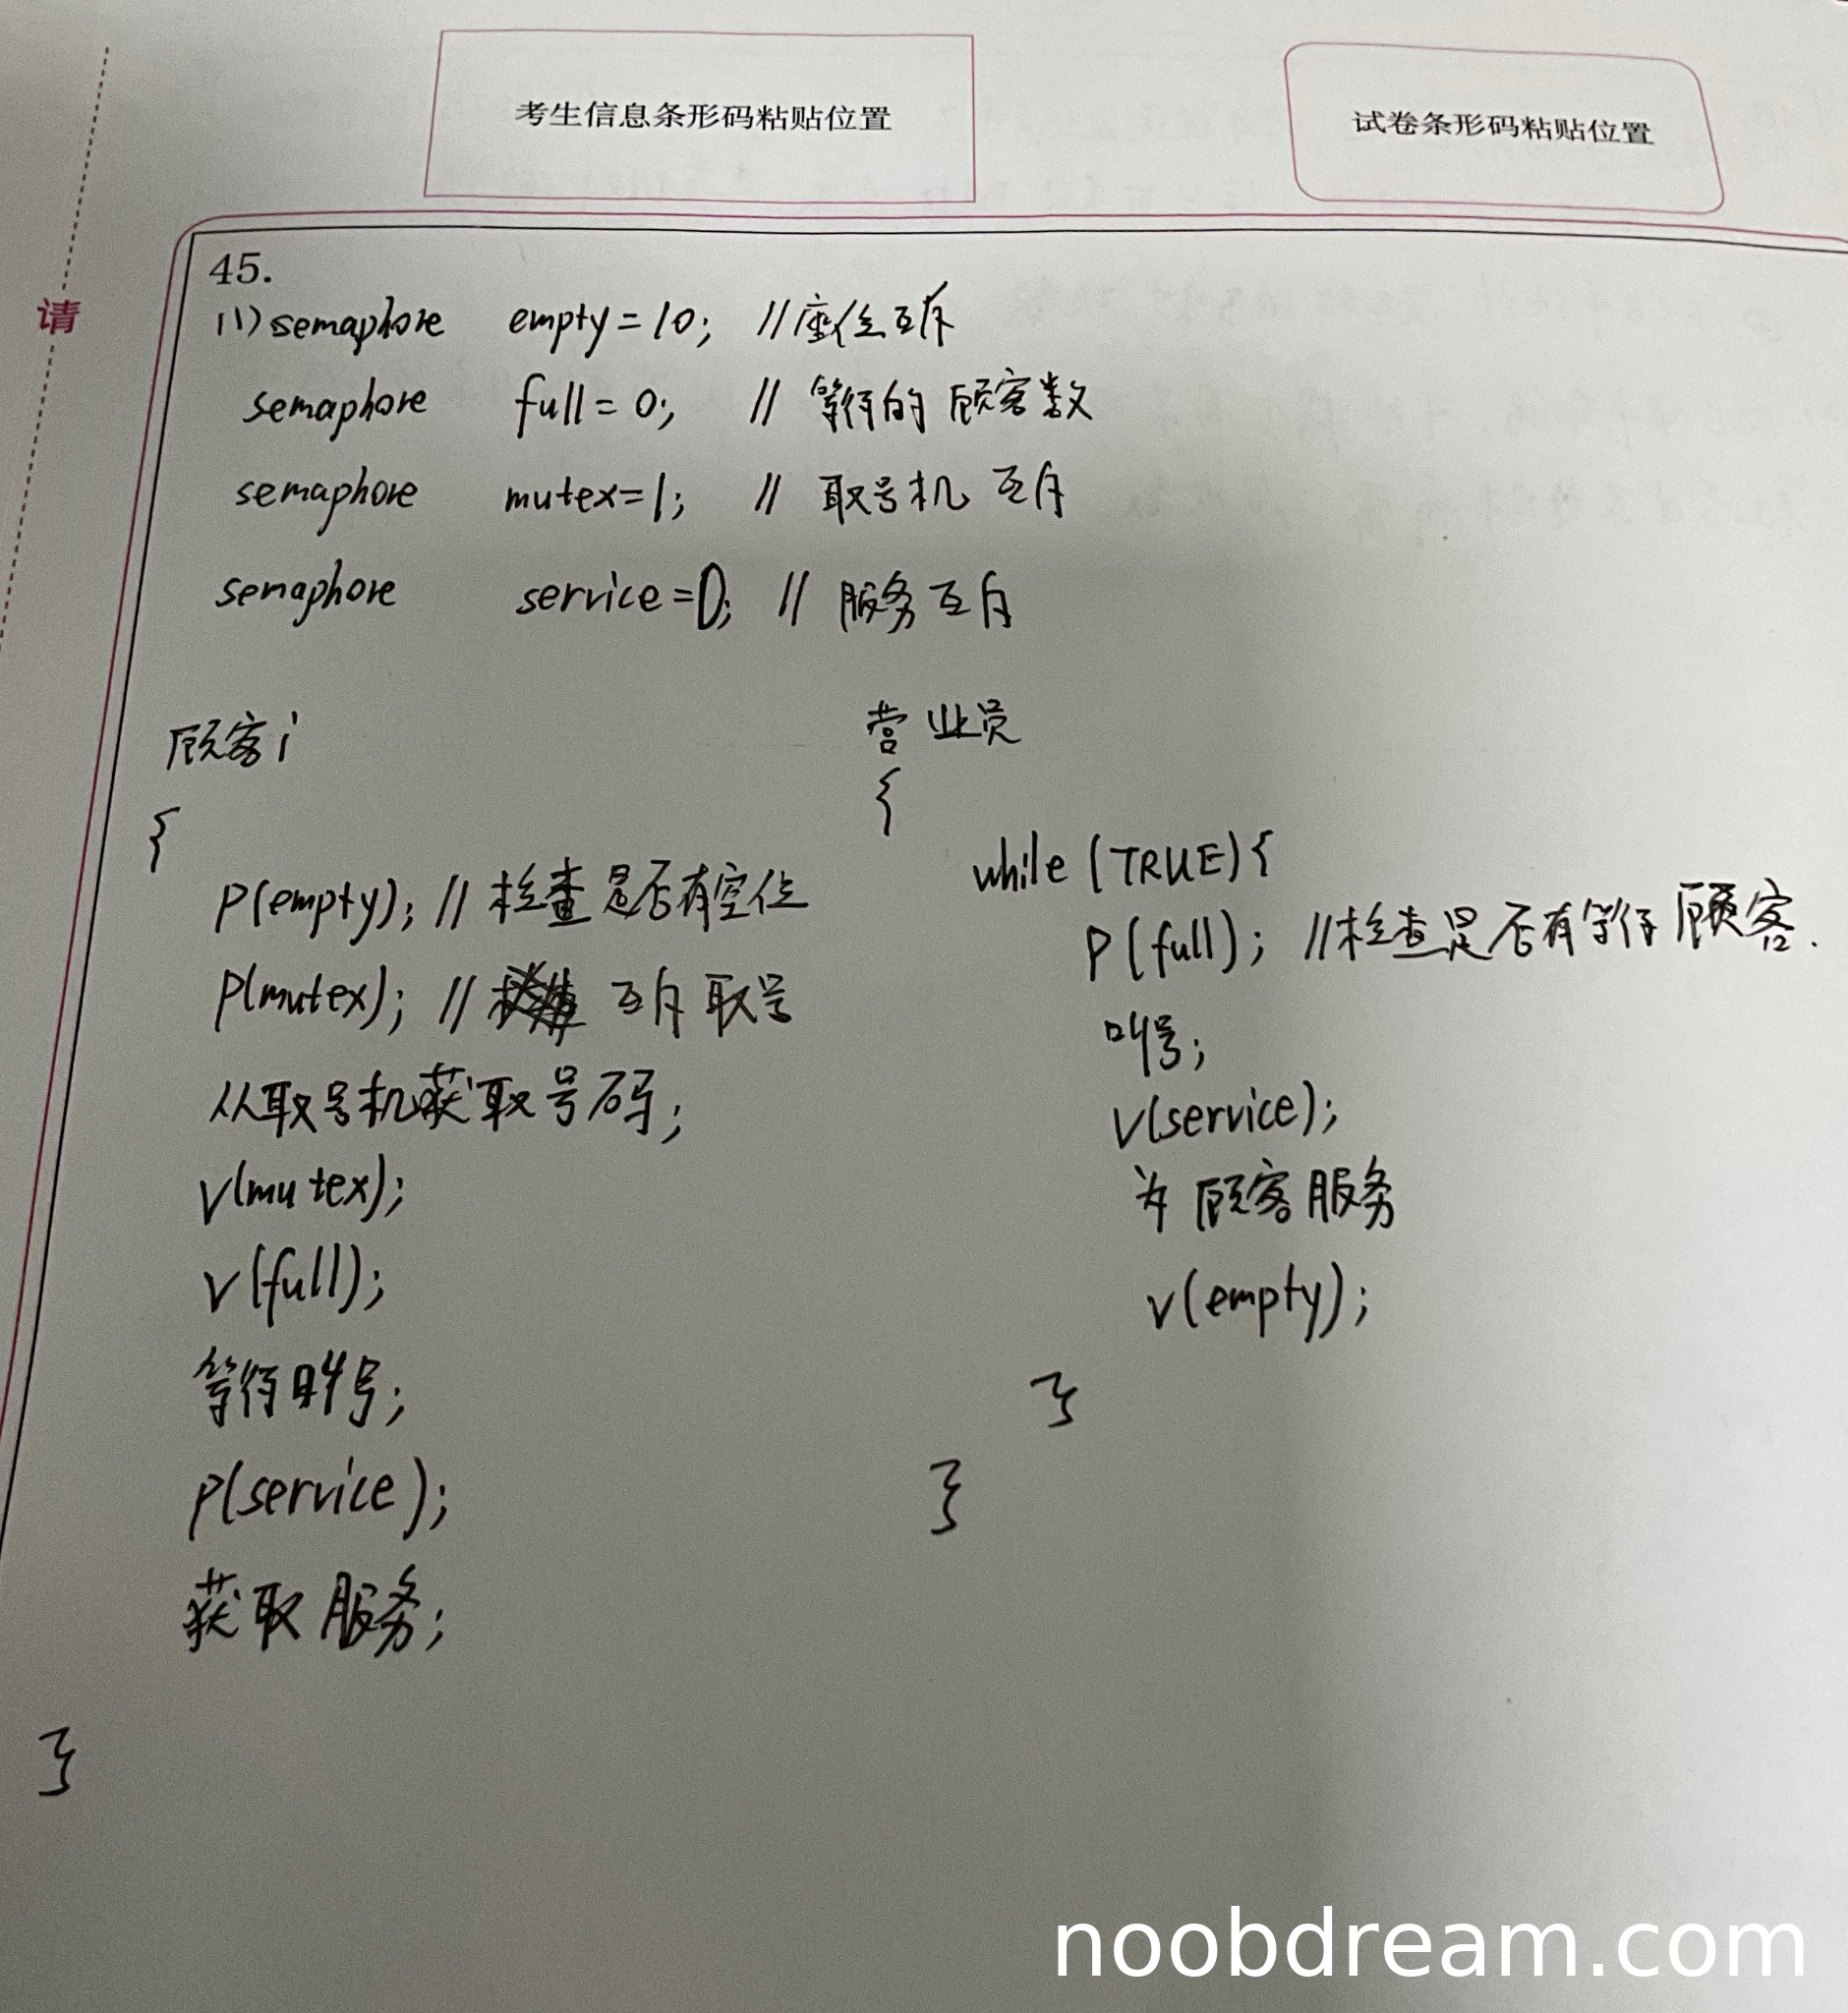 考生信息条形码粘贴位置
试卷条形码粘贴位置
请
45.
(1) semaphore empty=10; //座位互斥
semaphore full=0; // 等待的顾客数
semaphore mutex=1; // 取号机 互斥
semaphore service=0; // 服务互斥
顾客i
{
P(empty); // 检查是否有空位
P(mutex); // 互斥取号
从取号机获取号码;
V(mutex);
V(full);
等待叫号;
P(service);
获取服务;
}
营业员
{
while (TRUE) {
P(full); //检查是否有等待顾客.
叫号;
V(service);
为顾客服务
V(empty);
}
}
noobdream.com